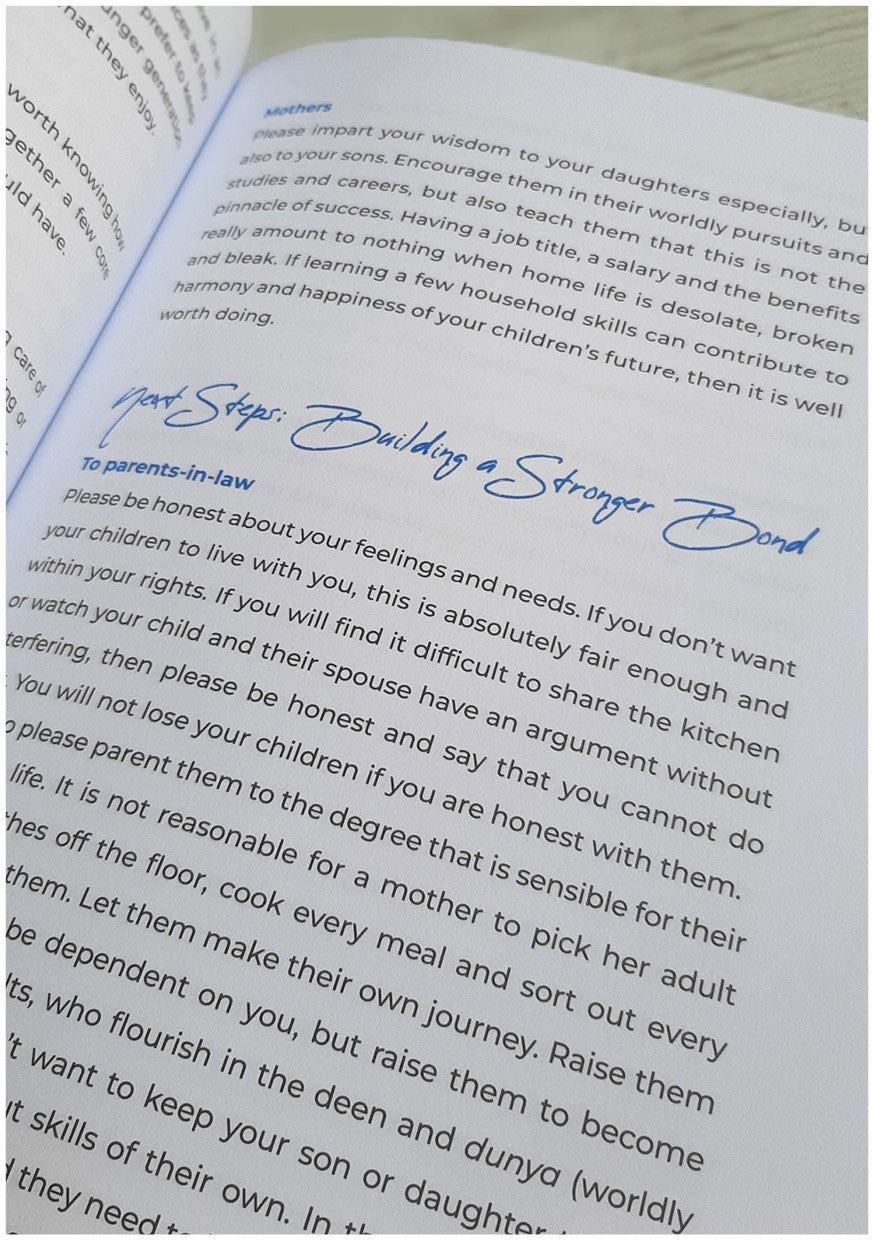 in an
as they
prefer to keep
unger generation
hat they enjoy.
worth knowing how
gether a few core
uld have.
care of
ng or
Mothers
Please impart your wisdom to your daughters especially, bu
also to your sons. Encourage them in their worldly pursuits and
studies and careers, but also teach them that this is not the
pinnacle of success. Having a job title, a salary and the benefits
really amount to nothing when home life is desolate, broken
and bleak. If learning a few household skills can contribute to
harmony and happiness of your children's future, then it is well
worth doing.
Next Steps: Building a Stronger Bond
To parents-in-law
Please be honest about your feelings and needs. If you don't want
your children to live with you, this is absolutely fair enough and
within your rights. If you will find it difficult to share the kitchen
or watch your child and their spouse have an argument without
terfering, then please be honest and say that you cannot do
. You will not lose your children if you are honest with them.
o please parent them to the degree that is sensible for their
life. It is not reasonable for a mother to pick her adult
hes off the floor, cook every meal and sort out every
them. Let them make their own journey. Raise them
be dependent on you, but raise them to become
lts, who flourish in the deen and dunya (worldly
't want to keep your son or daughter
ut skills of their own. In th
d they need to